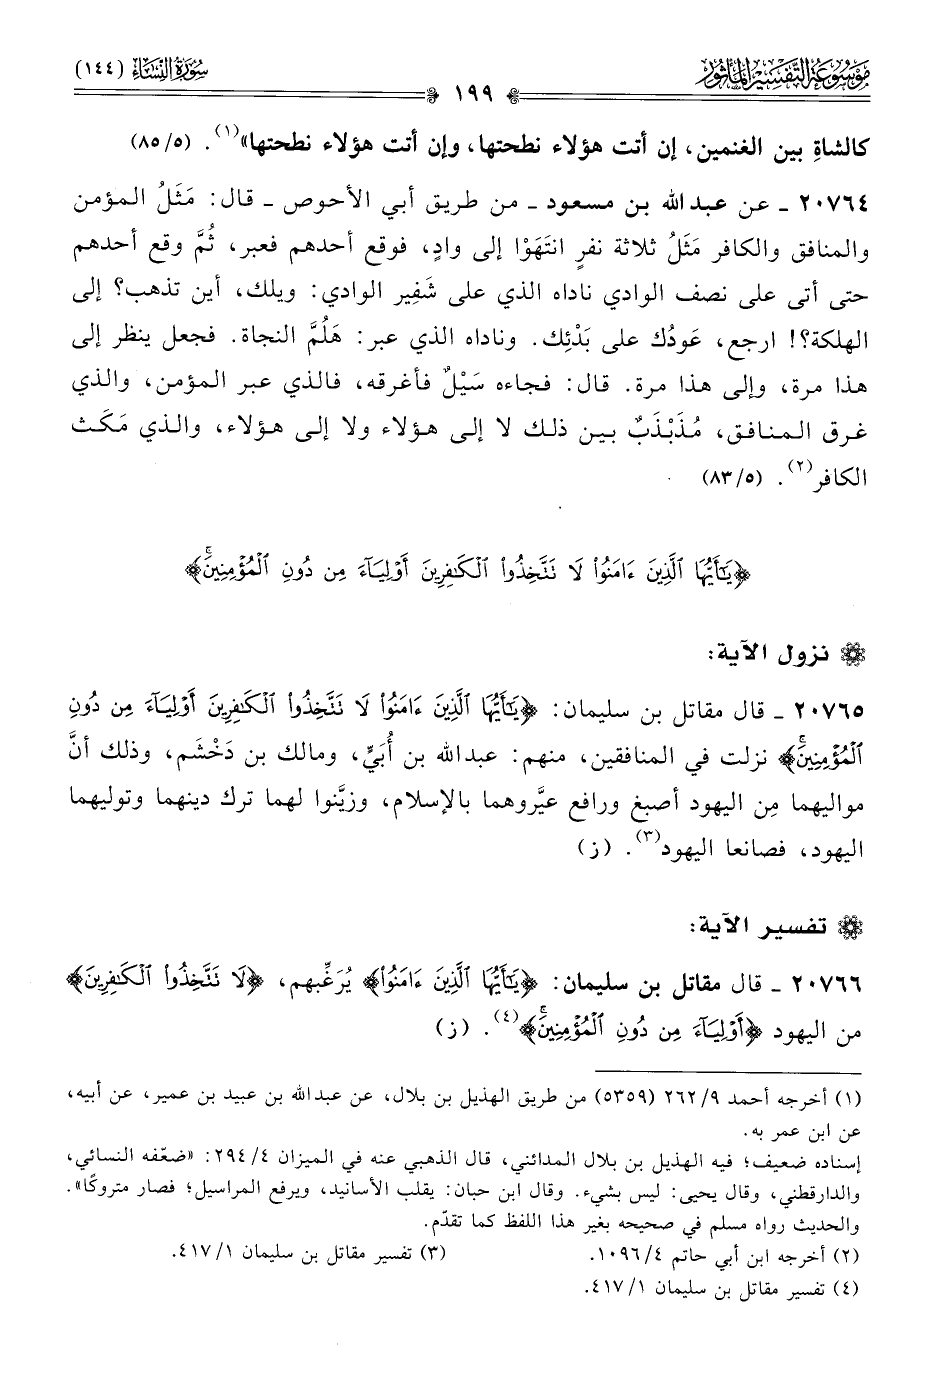 مَوْسُوعَةُ التَّفْسِيرِ المَأْثُورِ
سُورَةُ النِّسَاءِ (١٤٤)
١٩٩
كالشاةِ بين الغنمين، إن أتت هؤلاء نطحتها، وإن أتت هؤلاء نطحتها»(١). (٨٥/٥)
٢٠٧٦٤ ـ عن عبدالله بن مسعود ـ من طريق أبي الأحوص ـ قال: مَثَلُ المؤمن
والمنافق والكافر مَثَلُ ثلاثة نفرٍ انتَهَوْا إلى وادٍ، فوقع أحدهم فعبر، ثُمَّ وقع أحدهم
حتى أتى على نصف الوادي ناداه الذي على شَفِير الوادي: ويلك، أين تذهب؟ إلى
الهلكة؟! ارجع، عَودُك على بَدْئِك. وناداه الذي عبر: هَلُمَّ النجاة. فجعل ينظر إلى
هذا مرة، وإلى هذا مرة. قال: فجاءه سَيْلٌ فأغرقه، فالذي عبر المؤمن، والذي
غرق المنافق، مُذَبْذَبٌ بين ذلك لا إلى هؤلاء ولا إلى هؤلاء، والذي مَكَث
الكافر(٢). (٨٣/٥)
﴿يَٰٓأَيُّهَا ٱلَّذِينَ ءَامَنُوا۟ لَا تَتَّخِذُوا۟ ٱلْكَٰفِرِينَ أَوْلِيَآءَ مِن دُونِ ٱلْمُؤْمِنِينَۚ﴾
نزول الآية:
٢٠٧٦٥ ـ قال مقاتل بن سليمان: ﴿يَٰٓأَيُّهَا ٱلَّذِينَ ءَامَنُوا۟ لَا تَتَّخِذُوا۟ ٱلْكَٰفِرِينَ أَوْلِيَآءَ مِن دُونِ
ٱلْمُؤْمِنِينَۚ﴾ نزلت في المنافقين، منهم: عبدالله بن أُبَيٍّ، ومالك بن دَخْشَم، وذلك أنَّ
مواليهما مِن اليهود أصبغ ورافع عيَّروهما بالإسلام، وزيَّنوا لهما ترك دينهما وتوليهما
اليهود، فصانعا اليهود(٣). (ز)
تفسير الآية:
٢٠٧٦٦ ـ قال مقاتل بن سليمان: ﴿يَٰٓأَيُّهَا ٱلَّذِينَ ءَامَنُوا۟﴾ يُرَغِّبهم، ﴿لَا تَتَّخِذُوا۟ ٱلْكَٰفِرِينَ﴾
من اليهود ﴿أَوْلِيَآءَ مِن دُونِ ٱلْمُؤْمِنِينَۚ﴾(٤). (ز)
(١) أخرجه أحمد ٩/ ٢٦٢ (٥٣٥٩) من طريق الهذيل بن بلال، عن عبدالله بن عبيد بن عمير، عن أبيه،
عن ابن عمر به.
إسناده ضعيف؛ فيه الهذيل بن بلال المدائني، قال الذهبي عنه في الميزان ٤/ ٢٩٤: «ضعّفه النسائي،
والدارقطني، وقال يحيى: ليس بشيء. وقال ابن حبان: يقلب الأسانيد، ويرفع المراسيل؛ فصار متروكًا».
والحديث رواه مسلم في صحيحه بغير هذا اللفظ كما تقدّم.
(٢) أخرجه ابن أبي حاتم ٤/ ١٠٩٦. (٣) تفسير مقاتل بن سليمان ١/ ٤١٧.
(٤) تفسير مقاتل بن سليمان ١/ ٤١٧.